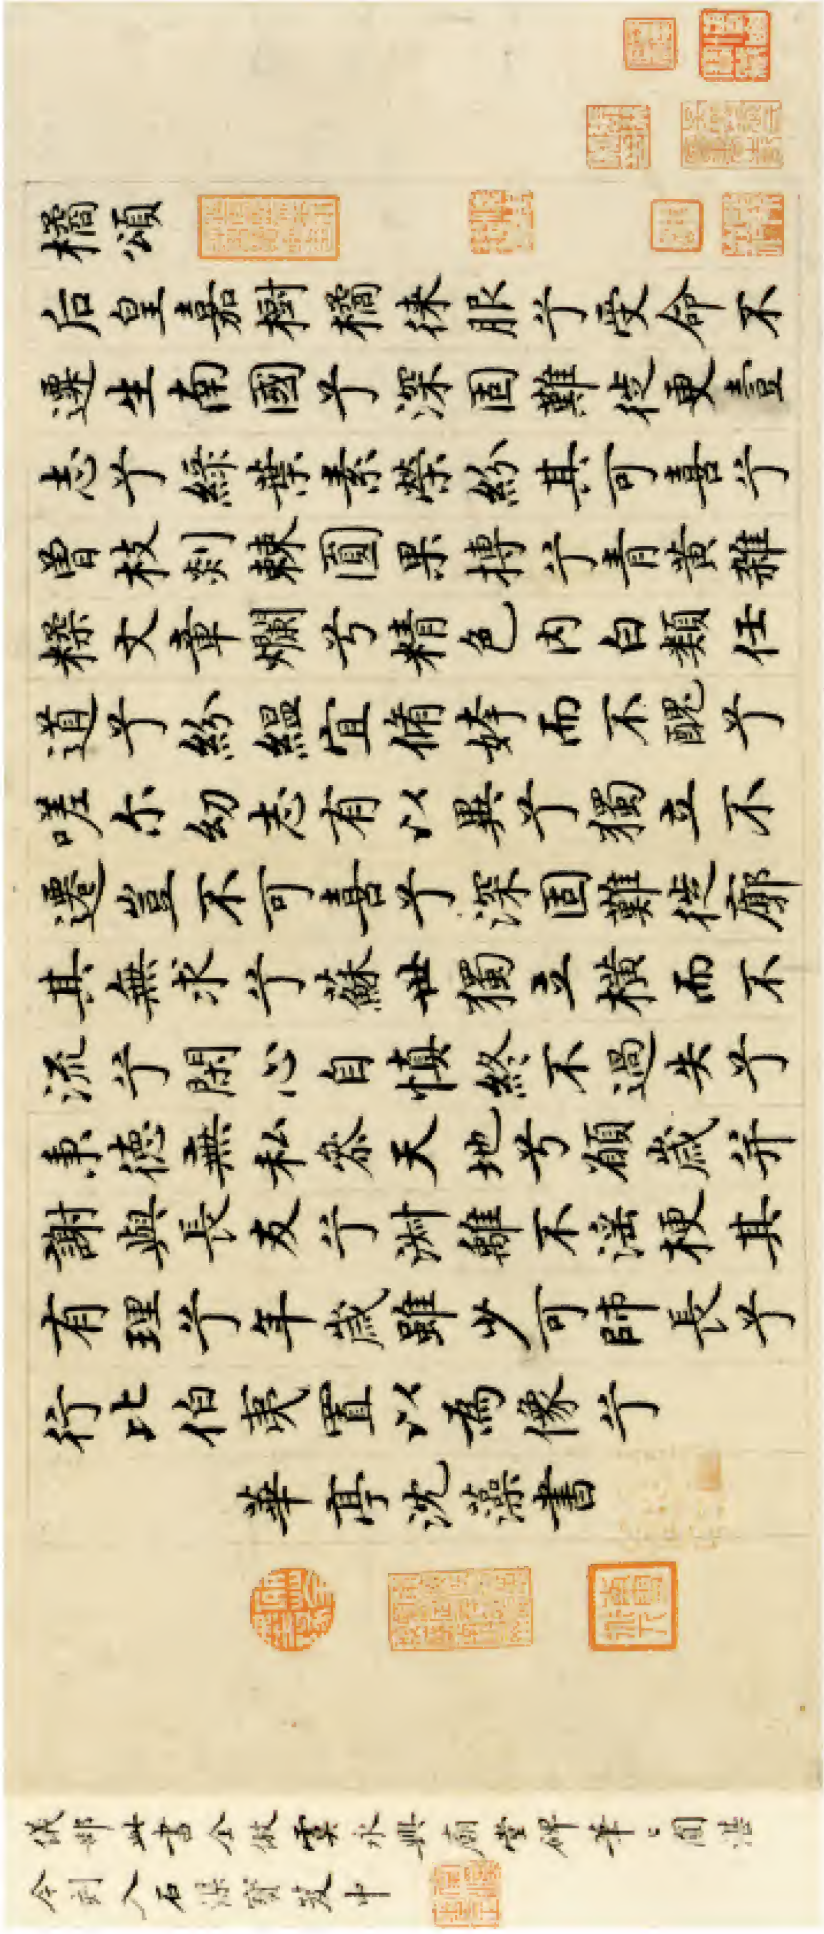 橘頌
后皇嘉樹橘徠服兮受命不
遷生南國兮深固難徙更壹
志兮綠葉素榮紛其可喜兮
曾枝剡棘圓果摶兮青黃雜
糅文章爛兮精色內白類任
道兮紛緼宜脩姱而不醜兮
嗟尔幼志有以異兮獨立不
遷豈不可喜兮深固難徙廓
其無求兮蘇世獨立橫而不
流兮閉心自慎終不過失兮
秉德無私參天地兮願歲并
謝與長友兮淑離不淫梗其
有理兮年歲雖少可師長兮
行比伯夷置以為像兮
華亭沈藻書
儀部此書全倣虞永興廟堂碑筆〻圓湛
今刻入石渠寶笈中